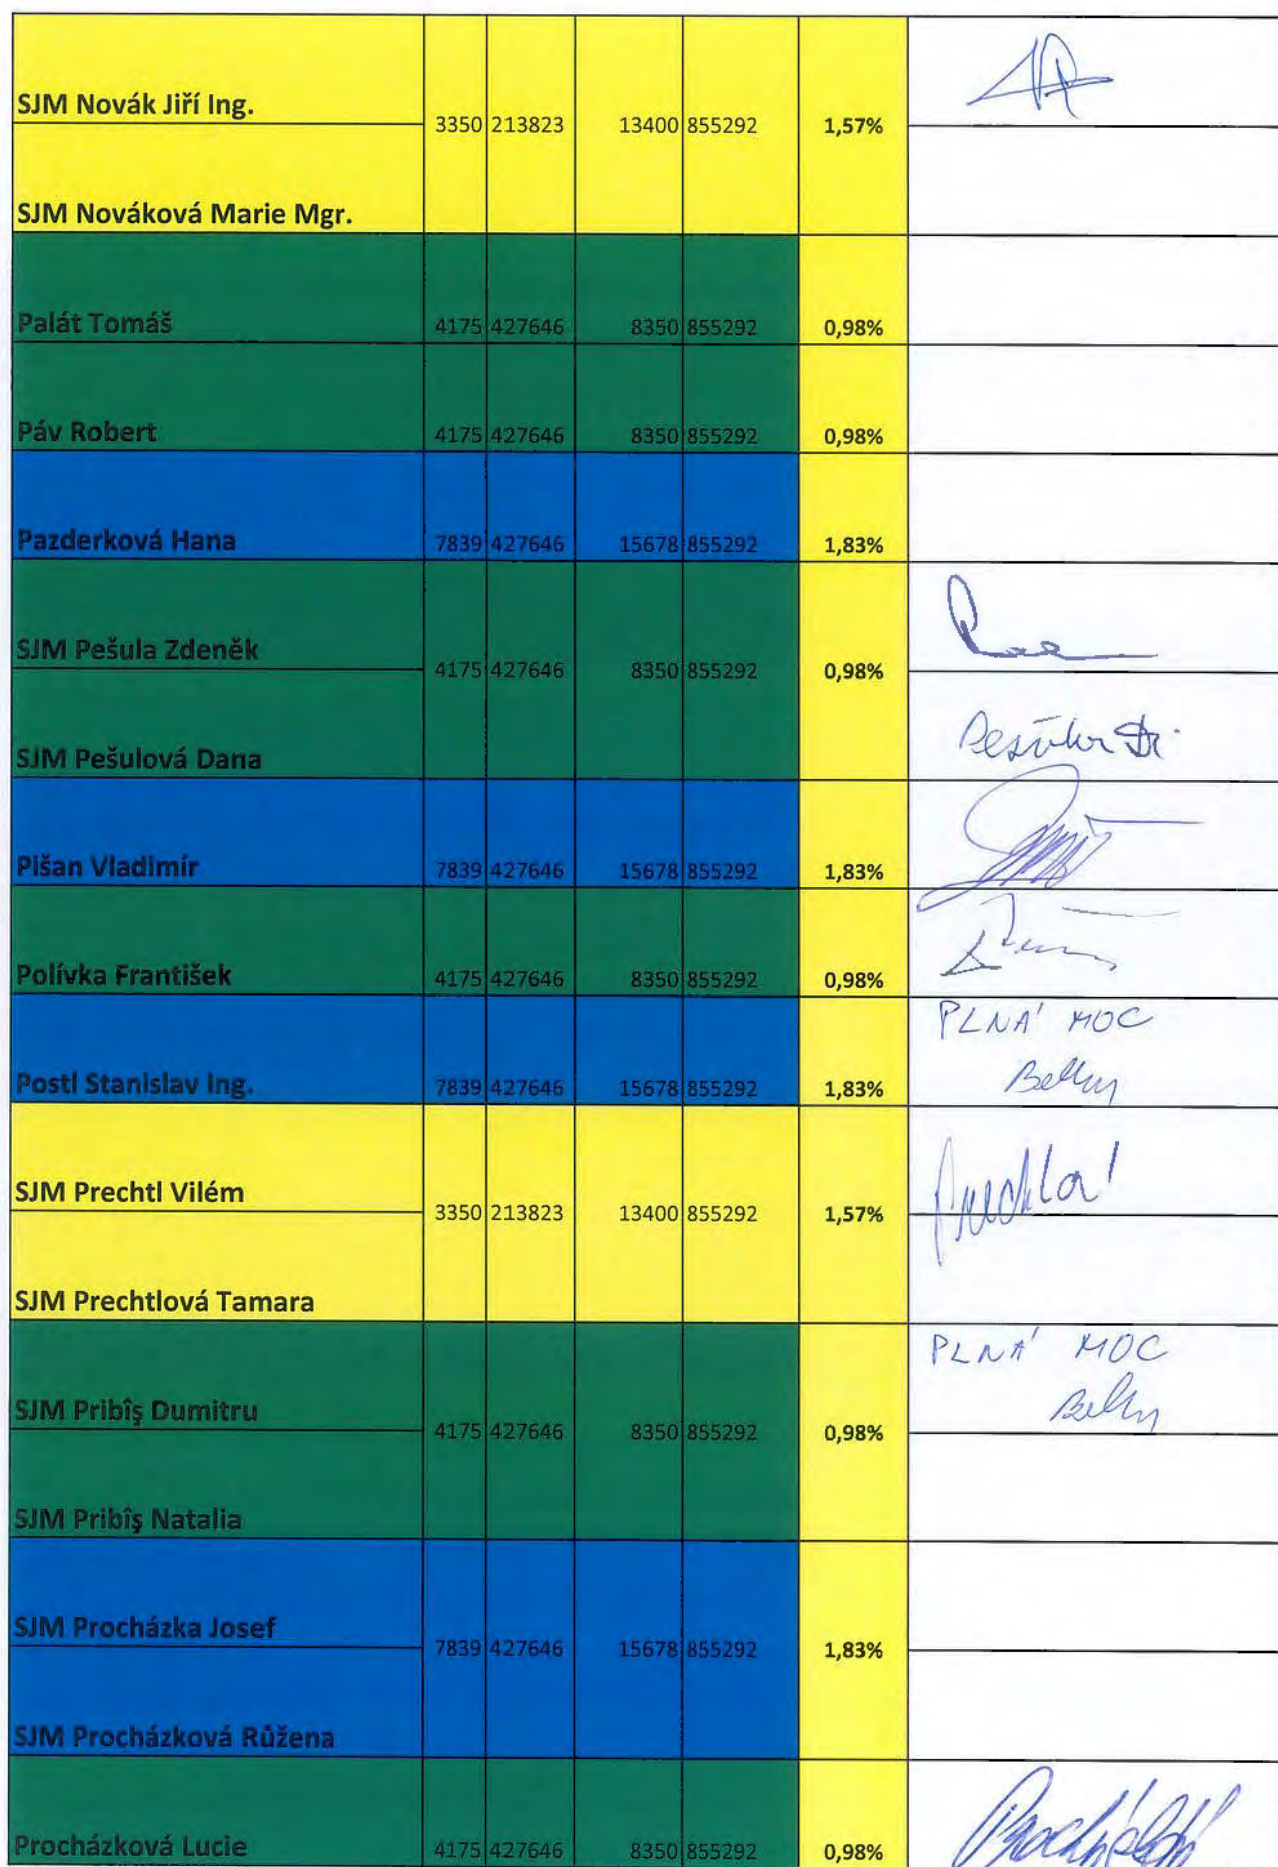 SJM Novák Jiří Ing.
3350 213823 13400 855292 1,57%
SJM Nováková Marie Mgr.
Palát Tomáš 4175 427646 8350 855292 0,98%
Páv Robert 4175 427646 8350 855292 0,98%
Pazderková Hana 7839 427646 15678 855292 1,83%
SJM Pešula Zdeněk
4175 427646 8350 855292 0,98%
SJM Pešulová Dana
Pišan Vladimír 7839 427646 15678 855292 1,83%
Polívka František 4175 427646 8350 855292 0,98%
PLNÁ MOC
Postl Stanislav Ing. 7839 427646 15678 855292 1,83%
SJM Prechtl Vilém
3350 213823 13400 855292 1,57%
SJM Prechtlová Tamara
PLNÁ MOC
SJM Pribîş Dumitru
4175 427646 8350 855292 0,98%
SJM Pribîş Natalia
SJM Procházka Josef
7839 427646 15678 855292 1,83%
SJM Procházková Růžena
Procházková Lucie 4175 427646 8350 855292 0,98%